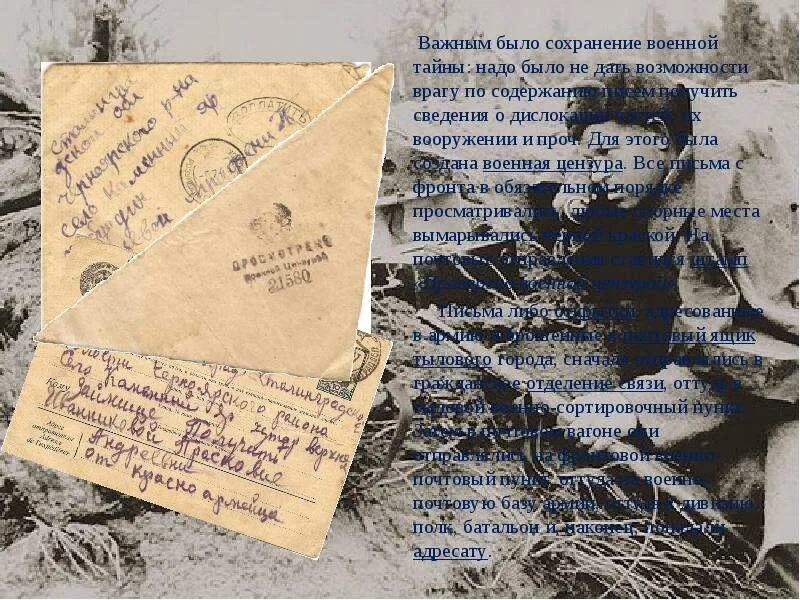 Важным было сохранение военной
тайны: надо было не дать возможности
врагу по содержанию писем получить
сведения о дислокации их
вооружении и проч. Для этого была
создана военная цензура. Все письма с
фронта в обязательном порядке
просматривались, спорные места
вымарывались краской. На
почтовые отправления ставился штамп
«Просмотрено военной цензурой».
Письма либо открытки, адресованные
в армию, брошенные в почтовый ящик
тылового города, сначала отправлялись в
гражданское отделение связи, оттуда в
тыловой военно-сортировочный пункт.
Затем в почтовом вагоне они
отправлялись на фронтовой военно-
почтовый пункт, оттуда на военно-
почтовую базу армии, оттуда в дивизию,
полк, батальон и, наконец, попадали
адресату.
обл
Черноярского р-на
село Каменный Яр
ДОПЛАТИТЬ
ПРОСМОТРЕНО
Военной Цензурой
21580
Сталинградской
Черноярского района
Село Каменный Яр хутор
Кому
Займище Получить
Иванниковой Прасковие
Андреевне
от красноармейца